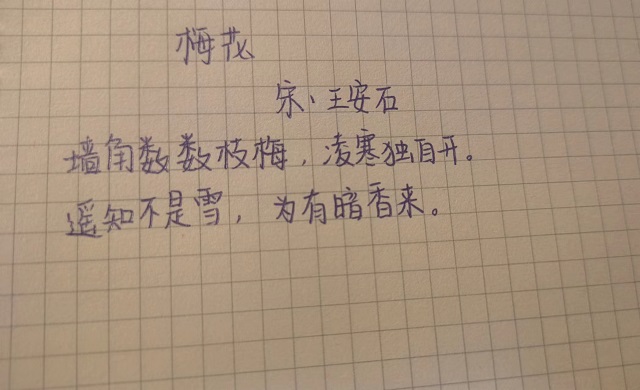 梅花
宋、王安石
墙角数数枝梅，凌寒独自开。
遥知不是雪，为有暗香来。